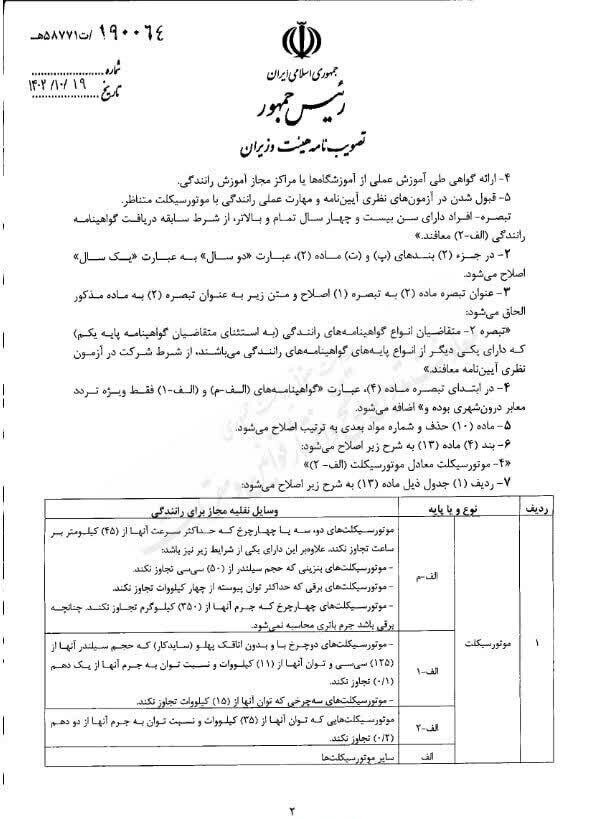 ۱۹۰۰۶۴/ت۵۸۷۷۱هـ
شماره
تاریخ ۱۴۰۲/۱۰/۱۹
جمهوری اسلامی ایران
رئیس جمهور
تصویب نامه هیئت وزیران
۴- ارائه گواهی طی آموزش عملی از آموزشگاه‌ها یا مراکز مجاز آموزش رانندگی.
۵- قبول شدن در آزمون‌های نظری آیین‌نامه و مهارت عملی رانندگی با موتورسیکلت متناظر.
تبصره- افراد دارای سن بیست و چهار سال تمام و بالاتر، از شرط سابقه دریافت گواهینامه
رانندگی (الف-۲) معافند.»
۲- در جزء (۲) بندهای (پ) و (ت) ماده (۲)، عبارت «دو سال» به عبارت «یک سال»
اصلاح می‌شود.
۳- عنوان تبصره ماده (۲) به تبصره (۱) اصلاح و متن زیر به عنوان تبصره (۲) به ماده مذکور
الحاق می‌شود:
«تبصره ۲- متقاضیان انواع گواهینامه‌های رانندگی (به استثنای متقاضیان گواهینامه پایه یکم)
که دارای یکی دیگر از انواع پایه‌های گواهینامه‌های رانندگی می‌باشند، از شرط شرکت در آزمون
نظری آیین‌نامه معافند.»
۴- در ابتدای تبصره ماده (۴)، عبارت «گواهینامه‌های (الف-م) و (الف-۱) فقط ویژه تردد
معابر درون‌شهری بوده و» اضافه می‌شود.
۵- ماده (۱۰) حذف و شماره مواد بعدی به ترتیب اصلاح می‌شود.
۶- بند (۴) ماده (۱۳) به شرح زیر اصلاح می‌شود:
«۴- موتورسیکلت معادل موتورسیکلت (الف- ۲)»
۷- ردیف (۱) جدول ذیل ماده (۱۳) به شرح زیر اصلاح می‌شود:
ردیف نوع و یا پایه وسایل نقلیه مجاز برای رانندگی
۱ موتورسیکلت
الف-م
موتورسیکلت‌های دو، سه یا چهارچرخ که حداکثر سرعت آنها از (۴۵) کیلومتر بر
ساعت تجاوز نکند. علاوه‌بر این دارای یکی از شرایط زیر نیز باشد:
- موتورسیکلت‌های بنزینی که حجم سیلندر از (۵۰) سی‌سی تجاوز نکند.
- موتورسیکلت‌های برقی که حداکثر توان پیوسته از چهار کیلووات تجاوز نکند.
- موتورسیکلت‌های چهارچرخ که جرم آنها از (۳۵۰) کیلوگرم تجاوز نکند. چنانچه
برقی باشد جرم باتری محاسبه نمی‌شود.
الف-۱
- موتورسیکلت‌های دوچرخ با و بدون اتاقک پهلو (سایدکار) که حجم سیلندر آنها از
(۱۲۵) سی‌سی و توان آنها از (۱۱) کیلووات و نسبت توان به جرم آنها از یک دهم
(۰/۱) تجاوز نکند.
- موتورسیکلت‌های سه‌چرخی که توان آنها از (۱۵) کیلووات تجاوز نکند.
الف-۲
موتورسیکلت‌هایی که توان آنها از (۳۵) کیلووات و نسبت توان به جرم آنها از دو دهم
(۰/۲) تجاوز نکند.
الف
سایر موتورسیکلت‌ها
۲